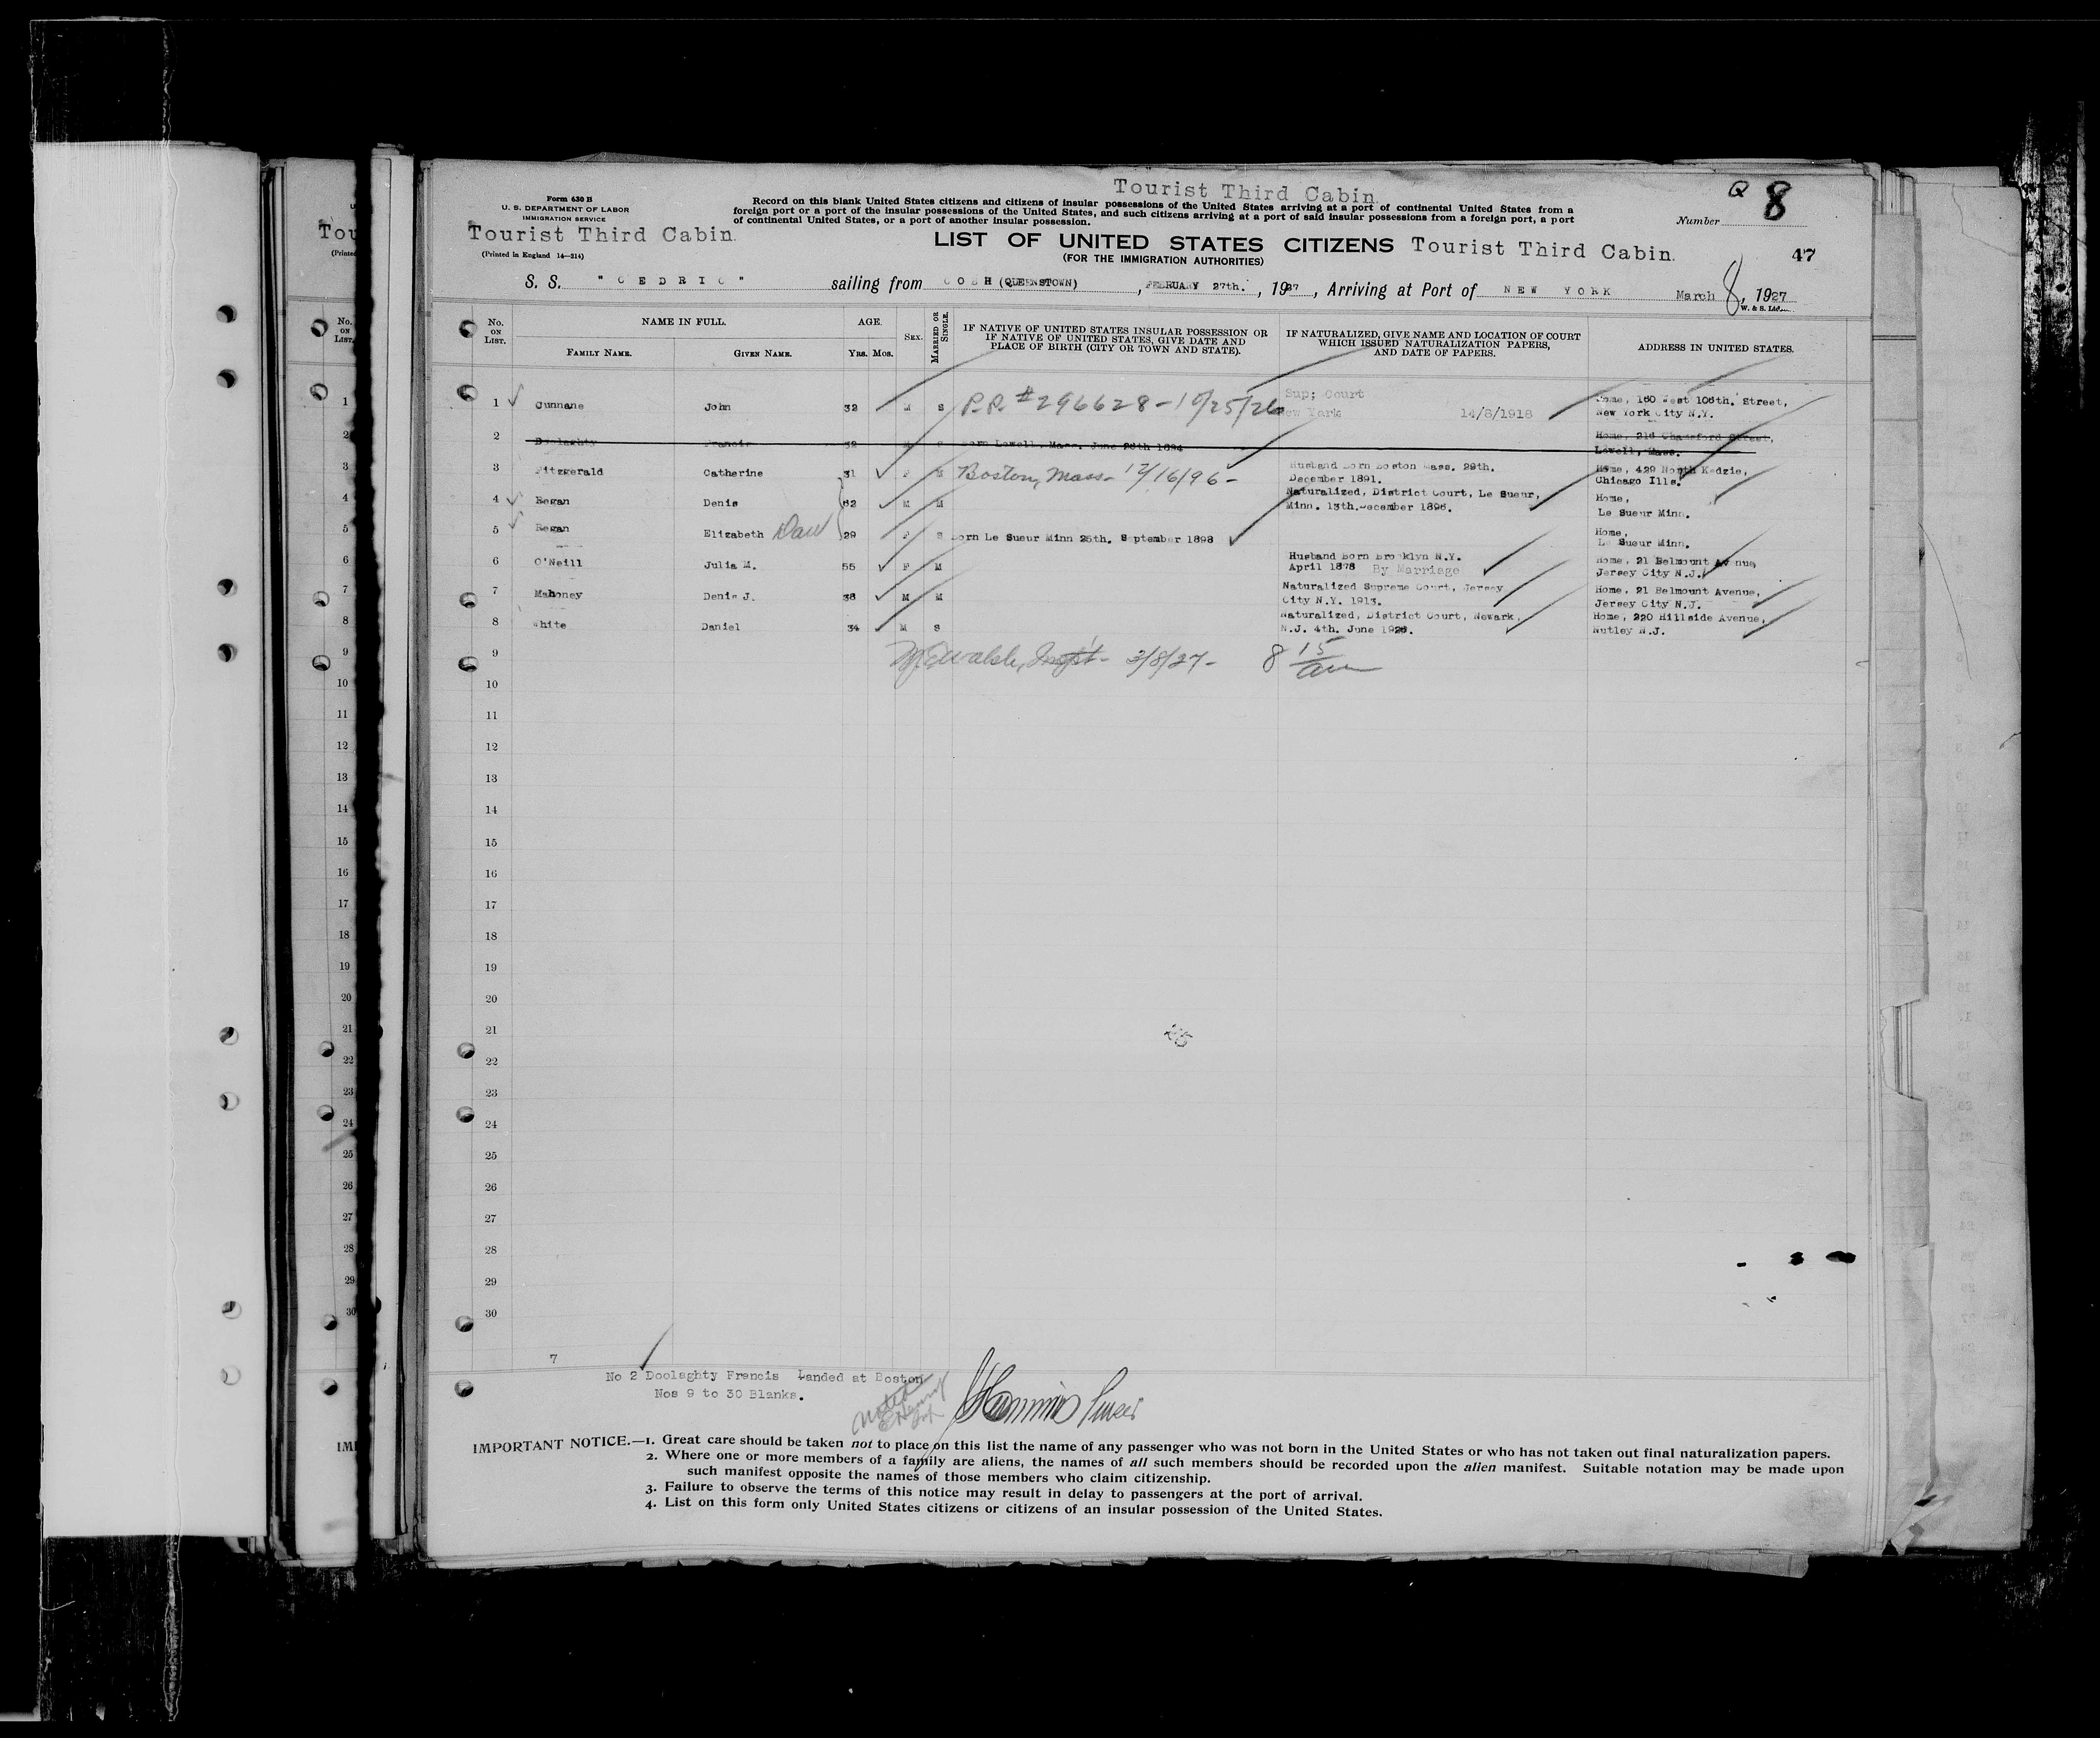 Tourist Third Cabin.
Q 8
Form 630 B
U. S. DEPARTMENT OF LABOR
IMMIGRATION SERVICE
Record on this blank United States citizens and citizens of insular possessions of the United States arriving at a port of continental United States from a
foreign port or a port of the insular possessions of the United States, and such citizens arriving at a port of said insular possessions from a foreign port, a port
of continental United States, or a port of another insular possession.
Number
Tourist Third Cabin.
LIST OF UNITED STATES CITIZENS Tourist Third Cabin.
(Printed in England 14—214)
(FOR THE IMMIGRATION AUTHORITIES)
47
S. S. "CEDRIC" sailing from COBH (QUEENSTOWN), FEBRUARY 27th., 1927, Arriving at Port of NEW YORK March 8, 1927
W. & S. Ltd.
No. ON LIST.
NAME IN FULL.
FAMILY NAME.
GIVEN NAME.
AGE.
YRS. MOS.
SEX.
MARRIED OR SINGLE.
IF NATIVE OF UNITED STATES INSULAR POSSESSION OR
IF NATIVE OF UNITED STATES, GIVE DATE AND
PLACE OF BIRTH (CITY OR TOWN AND STATE).
IF NATURALIZED, GIVE NAME AND LOCATION OF COURT
WHICH ISSUED NATURALIZATION PAPERS,
AND DATE OF PAPERS.
ADDRESS IN UNITED STATES.
1 Cunnane John 32 M S P.P. #296628-10/25/26 Sup; Court
New York 14/8/1918
Home, 160 West 106th. Street,
New York City N.Y.
2 Doolaghty Francis 32 M S Born Lowell, Mass. June 28th 1894
Home, 216 Chamsford Street,
Lowell, Mass.
3 Fitzgerald Catherine 31 F M Boston, Mass- 12/16/96- Husband Born Boston Mass. 29th.
December 1891.
Home, 429 North Kedzie,
Chicago Ills.
4 Regan Denis 62 M M Naturalized, District Court, Le Sueur,
Minn. 13th.December 1896.
Home,
Le Sueur Minn.
5 Regan Elizabeth Dau 29 F S Born Le Sueur Minn 25th. September 1898
Home,
Le Sueur Minn.
6 O'Neill Julia M. 55 F M Husband Born Brooklyn N.Y.
April 1878 By Marriage
Home, 21 Belmount Avenue,
Jersey City N.J.
7 Mahoney Denis J. 38 M M Naturalized Supreme Court, Jersey
City N.Y. 1913.
Home, 21 Belmount Avenue,
Jersey City N.J.
8 White Daniel 34 M S Naturalized, District Court, Newark,
N.J. 4th. June 1926.
Home, 220 Hillside Avenue,
Nutley N.J.
9 Walsh, Inspt- 3/8/27- 8 15/am
10
11
12
13
14
15
16
17
18
19
20
21
22
23
24
25
26
27
28
29
30
7
No 2 Doolaghty Francis Landed at Boston
Nos 9 to 30 Blanks.
Noted
IMPORTANT NOTICE.—1. Great care should be taken not to place on this list the name of any passenger who was not born in the United States or who has not taken out final naturalization papers.
2. Where one or more members of a family are aliens, the names of all such members should be recorded upon the alien manifest. Suitable notation may be made upon
such manifest opposite the names of those members who claim citizenship.
3. Failure to observe the terms of this notice may result in delay to passengers at the port of arrival.
4. List on this form only United States citizens or citizens of an insular possession of the United States.